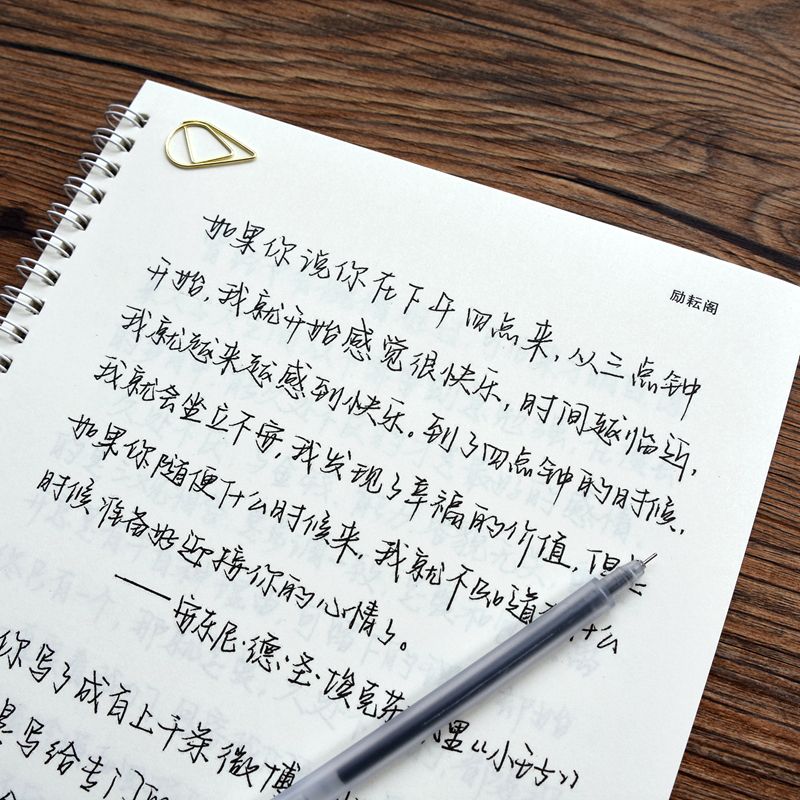 励耘阁
如果你说你在下午四点来，从三点钟
开始，我就开始感觉很快乐，时间越临近，
我就越来越感到快乐。到了四点钟的时候，
我就会坐立不安，我发现了幸福的价值，但
如果你随便什么时候来，我就不知道 什么
时候准备好迎接你的心情了。
——安东尼·德·圣·埃克苏 里《小
你写了成百上千条微博
是写给专门